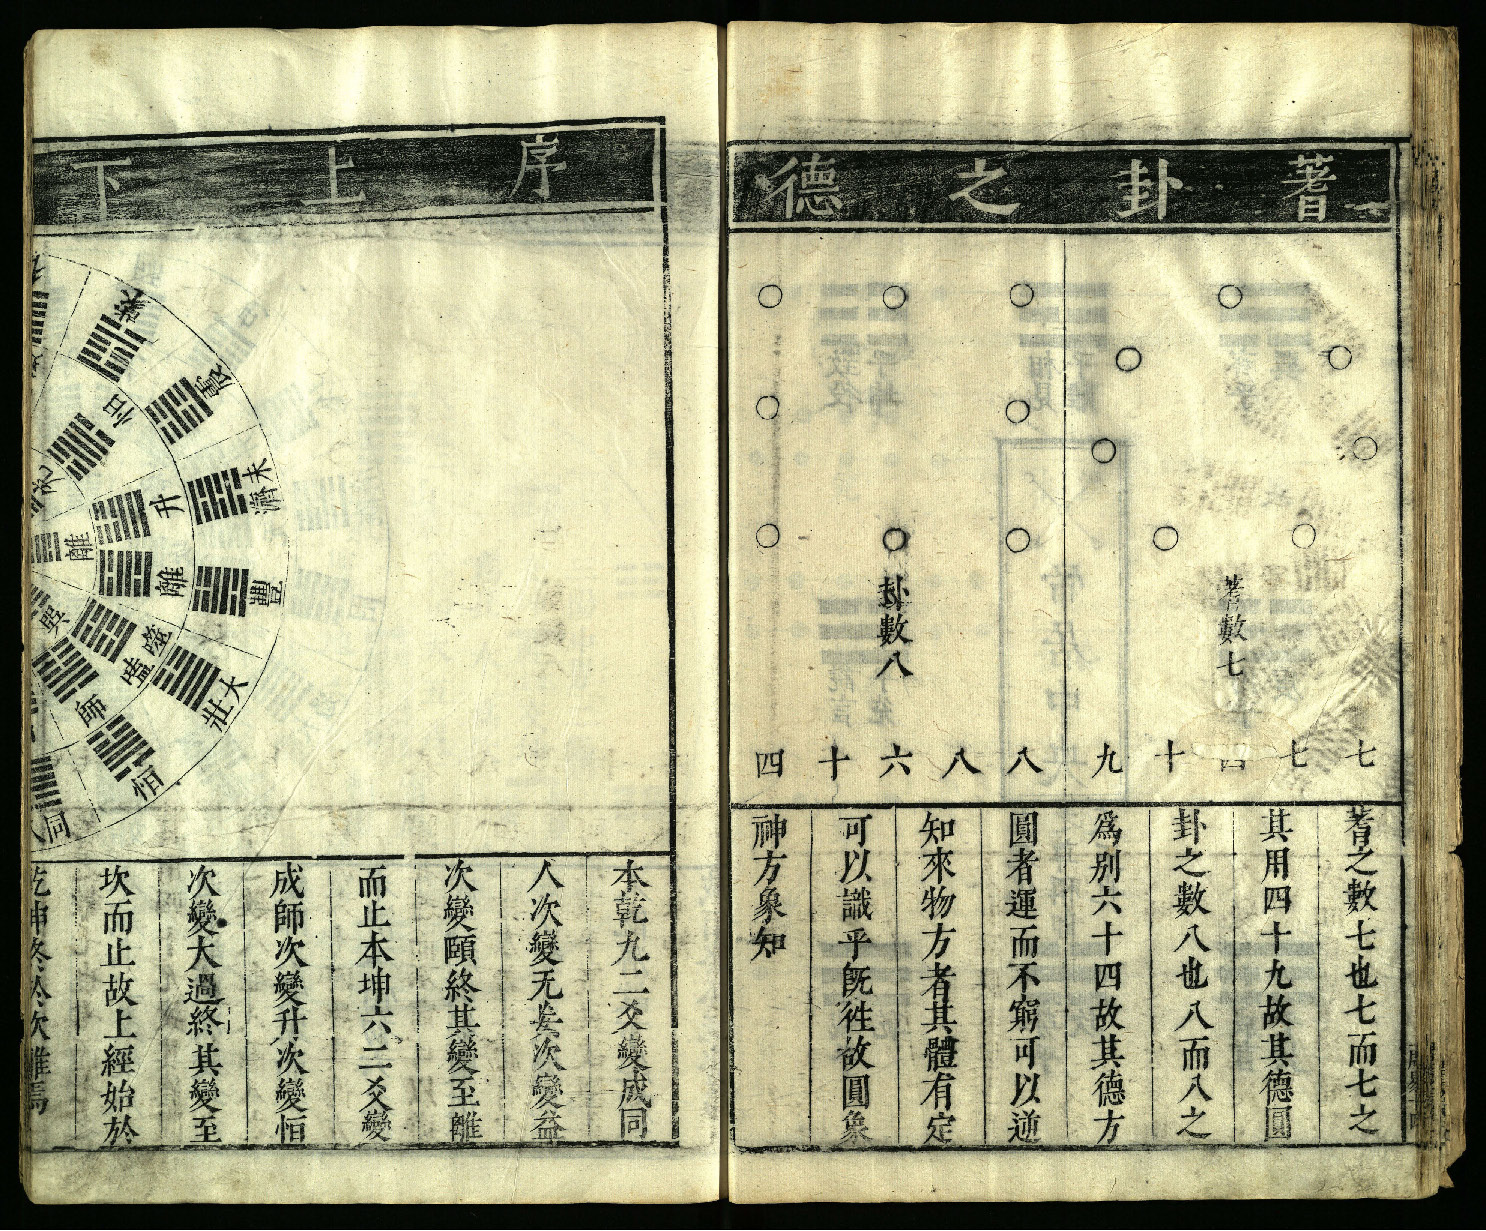 蓍卦之德
蓍數七
卦數八
七七四十九
八八六十四
蓍之數七也七而七之
其用四十九故其德圓
卦之數八也八而八之
爲別六十四故其德方
圓者運而不窮可以逆
知來物方者其體有定
可以識乎旣徃故圓象
神方象知
序上下
未濟
升
離
離
豐
隨
噬
巽
大壯
師
恒
同
本乾九二爻變成同
人次變无妄次變益
次變頤終其變至離
而止本坤六二爻變
成師次變升次變恒
次變大過終其變至
坎而止故上經始於
乾坤終於坎離焉